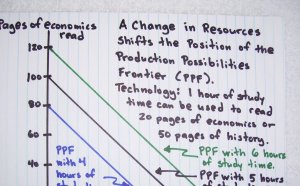 Pages of economics
read
A Change in Resources
Shifts the Position of the
Production Possibilities
Frontier (PPF).
Technology: 1 hour of study
time can be used to read
20 pages of economics or
50 pages of history.
120
100
80
60
40
PPF
with 4
hours of
PPF with 6 hours
of study time.
PPF with 5 hours